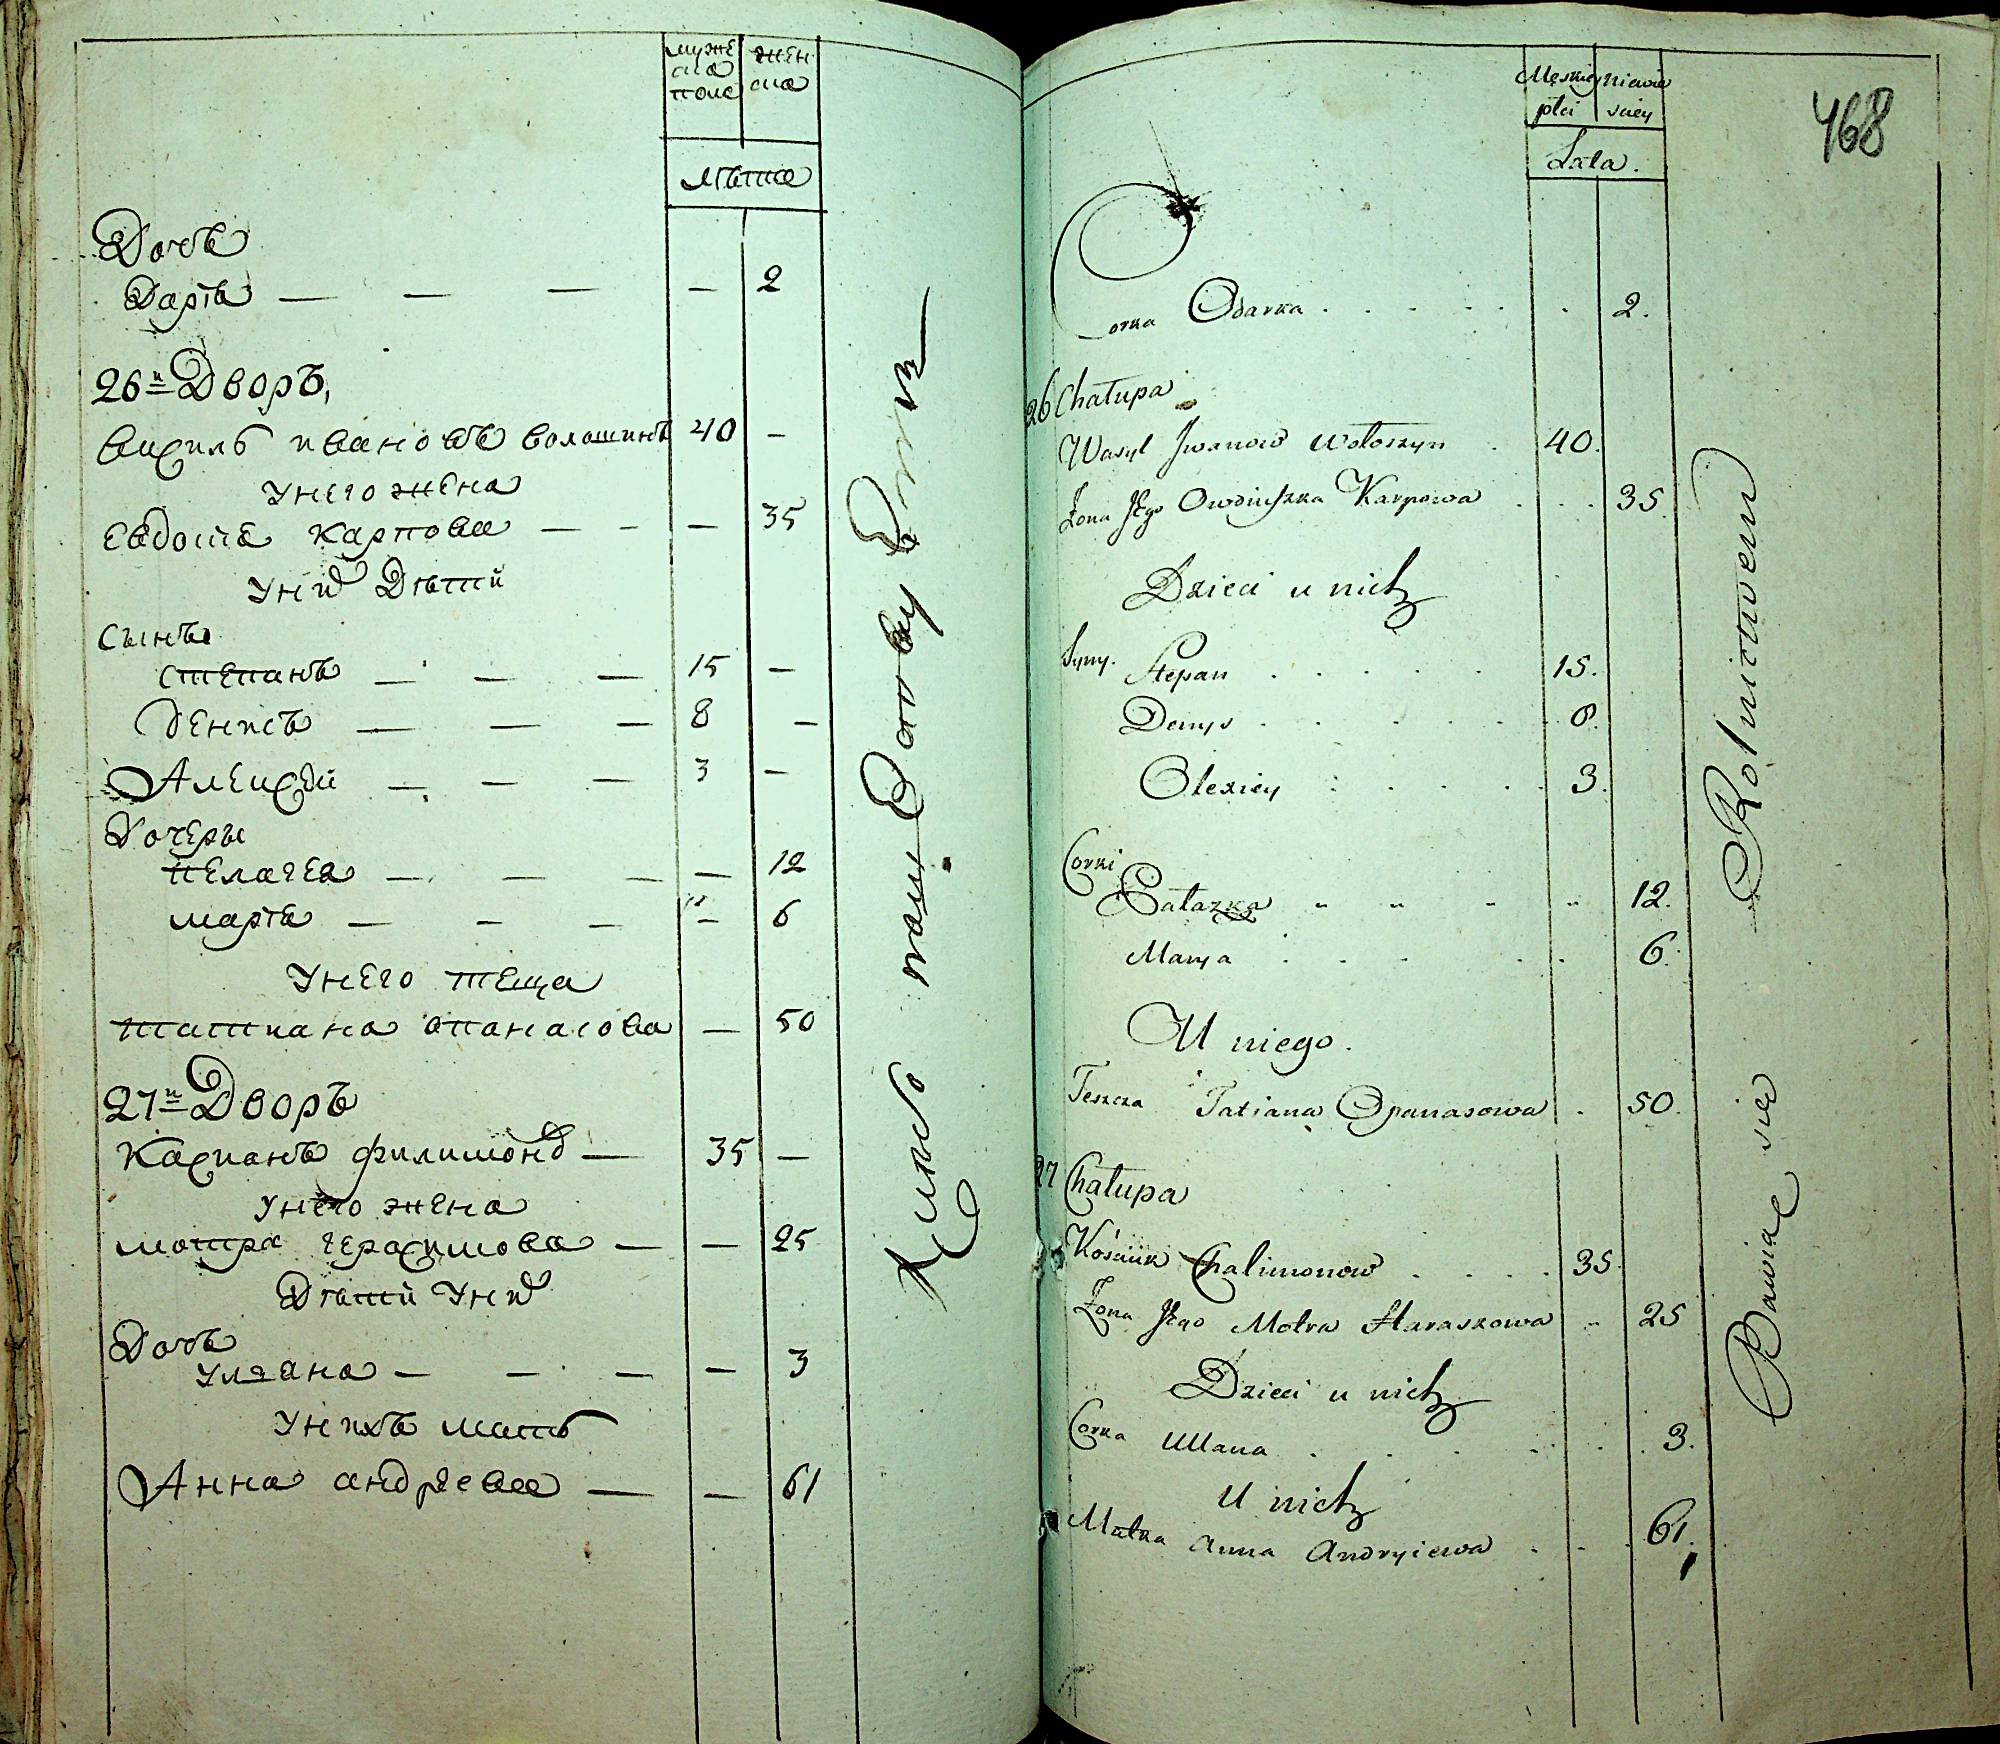 муже
ска
пола
жен
ска
лѣта
Дочь
Дарья — — — — 2
26й Дворъ,
василь ивановъ волошинъ 40 —
у него жена
евдокия карпова — — — 35
у них Дѣтий
сынъы
степанъ — — — 15 —
Денисъ — — — 8 —
Алексѣй — — — 3 —
Дочеры
пелагея — — — — 12
марья — — — — 6
у него теща
татиана опанасова — 50
27й Дворъ
Касианъ филимонов — 35 —
у него жена
мотра герасимова — — 25
Дѣтий у них
Дочь
уляана — — — — 3
у нихъ мать
Анна андреева — — 61
468
Męskiey niewie
płci sciey
Lata.
Corka Odarka . . . . . 2.
26 Chałupa
Wasyl Iwanow Wołoszyn . 40.
Żona Jego Owdiuszka Karpowa . . . 35
Dzieci u nich
Syny. Stepan . . . . 15.
Denys . . . . . 8.
Olexiey . . . . 3.
Corki
Pałazka " " " " 12.
Marya . . . . . 6.
U niego.
Teszcza Tatiana Opanasowa . 50.
27 Chałupa
Kośiuk Chalimonow . . . . 35.
Żona Jego Motra Haraskowa .. 25
Dzieci u nich
Corka Ullana . . . . . 3.
U nich
Matka Anna Andryiewa . . . 61.
Bawiąc się Rolnictwem